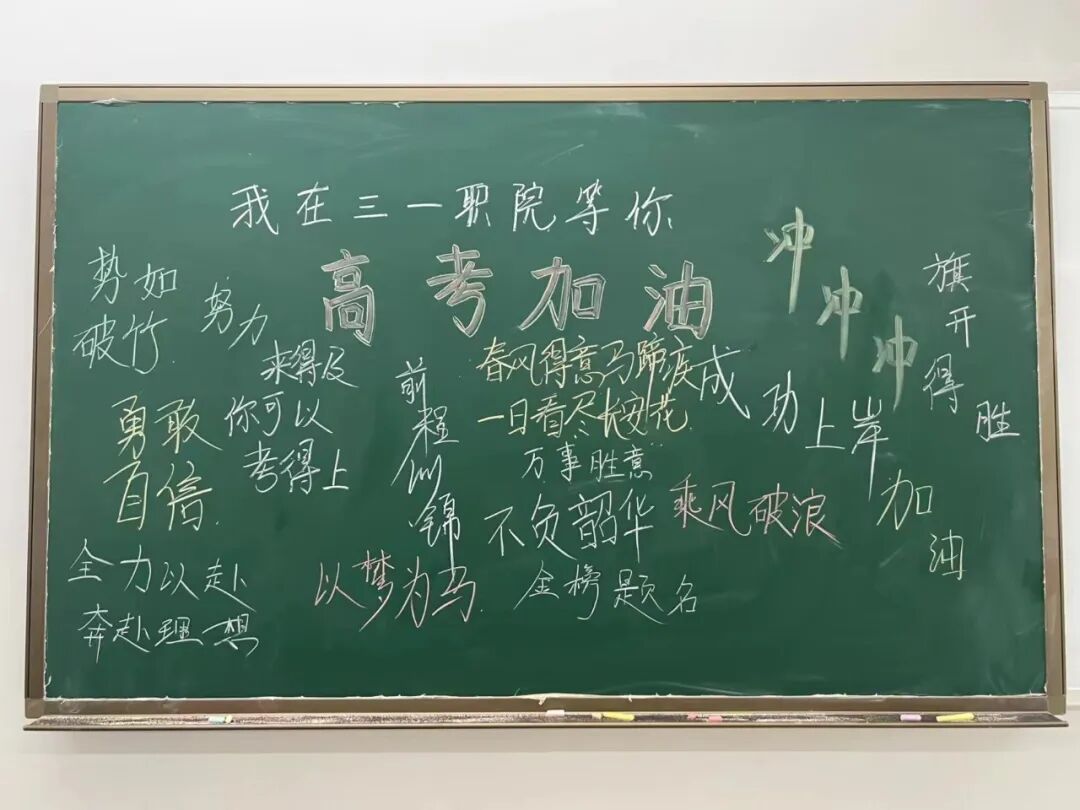 我在三一职院等你
高考加油
冲冲冲
旗开得胜
势如
破竹
努力
来得及
你可以
考得上
前程似锦
春风得意马蹄疾
一日看尽长安花
成功上岸
勇敢
百倍
万事胜意
不负韶华
乘风破浪
加油
全力以赴
奔赴理想
以梦为马
金榜题名